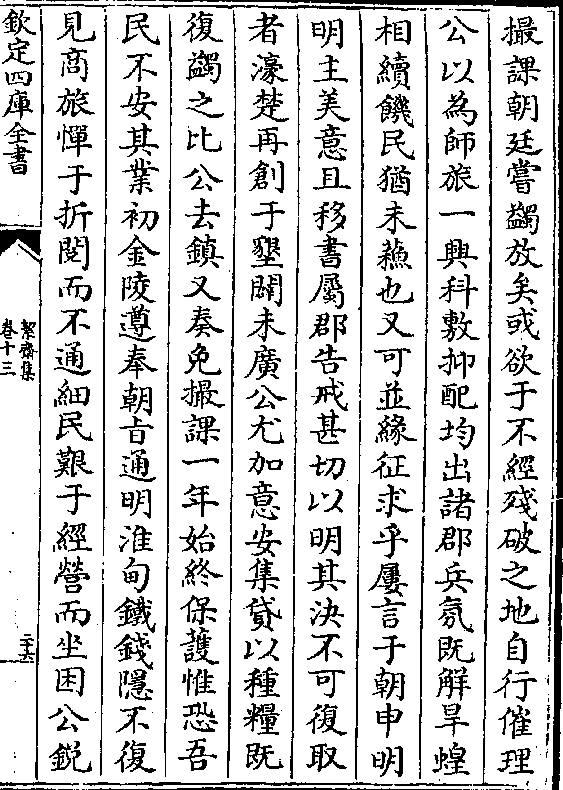 撮課朝廷嘗蠲放矣或欲于不經殘破之地自行催理
公以為師旅一興科敷抑配均出諸郡兵氛既解旱蝗
相續饑民猶未蘇也又可並緣征求乎屢言于朝申明
明主美意且移書屬郡告戒甚切以明其決不可復取
者濠楚再創于墾闢未廣公尤加意安集貸以種糧既
復蠲之比公去鎮又奏免撮課一年始終保護惟恐吾
民不安其業初金陵遵奉朝㫖通明淮甸鐵錢隱不復
見商旅憚于折閱而不通細民艱于經營而坐困公鋭
欽定四庫全書
絜齋集
卷十三
二十六